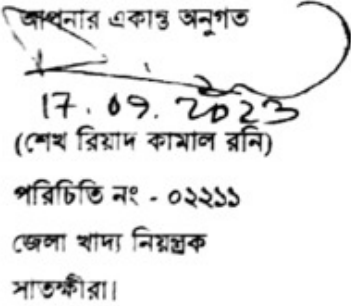 আপনার একান্ত অনুগত
17.09.2023
(শেখ রিয়াদ কামাল রনি)
পরিচিতি নং - ০২২১১
জেলা খাদ্য নিয়ন্ত্রক
সাতক্ষীরা।